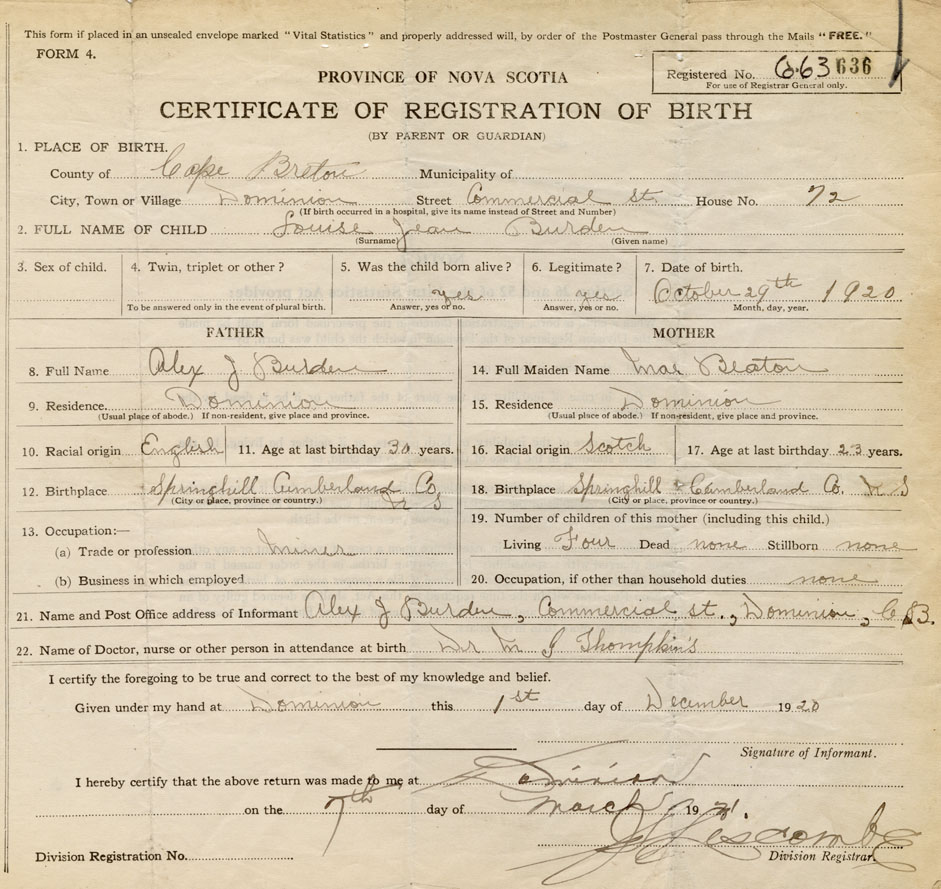 This form if placed in an unsealed envelope marked "Vital Statistics" and properly addressed will, by order of the Postmaster General pass through the Mails "FREE."
FORM 4.
PROVINCE OF NOVA SCOTIA
Registered No. 663 636
For use of Registrar General only.
CERTIFICATE OF REGISTRATION OF BIRTH
(BY PARENT OR GUARDIAN)
1. PLACE OF BIRTH.
County of Cape Breton Municipality of
City, Town or Village Dominion Street Commercial St. House No. 72
(If birth occurred in a hospital, give its name instead of Street and Number)
2. FULL NAME OF CHILD Louise Jean Burden
(Surname) (Given name)
3. Sex of child. 4. Twin, triplet or other? 5. Was the child born alive? 6. Legitimate? 7. Date of birth.
yes yes October 29th 1920
To be answered only in the event of plural birth. Answer, yes or no. Answer, yes or no. Month, day, year.
FATHER MOTHER
8. Full Name Alex J Burden 14. Full Maiden Name Mae Beaton
9. Residence. Dominion 15. Residence Dominion
(Usual place of abode.) If non-resident, give place and province. (Usual place of abode.) If non-resident, give place and province.
10. Racial origin English 11. Age at last birthday 30 years. 16. Racial origin Scotch 17. Age at last birthday 23 years.
12. Birthplace Springhill Cumberland Co. N S 18. Birthplace Springhill Cumberland Co. N S
(City or place, province or country.) (City or place, province or country.)
13. Occupation:— 19. Number of children of this mother (including this child.)
(a) Trade or profession miner Living Four Dead none Stillborn none
(b) Business in which employed 20. Occupation, if other than household duties none
21. Name and Post Office address of Informant Alex J Burden, Commercial st., Dominion, C.B.
22. Name of Doctor, nurse or other person in attendance at birth Dr M J Thompkin's
I certify the foregoing to be true and correct to the best of my knowledge and belief.
Given under my hand at Dominion this 1st day of December 1920
Signature of Informant.
I hereby certify that the above return was made to me at Dominion
on the 7th day of March 1921.
Division Registration No. Division Registrar.